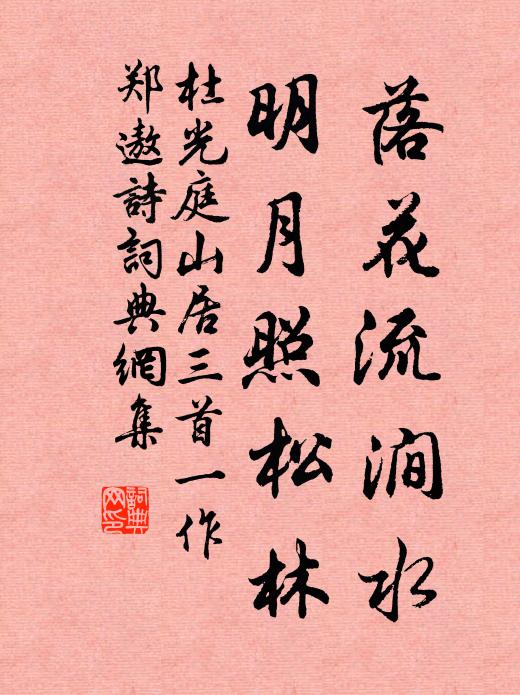 落花流澗水
明月照松林
杜光庭山居三首一作
郑遨詩詞典網集
詞典
网印